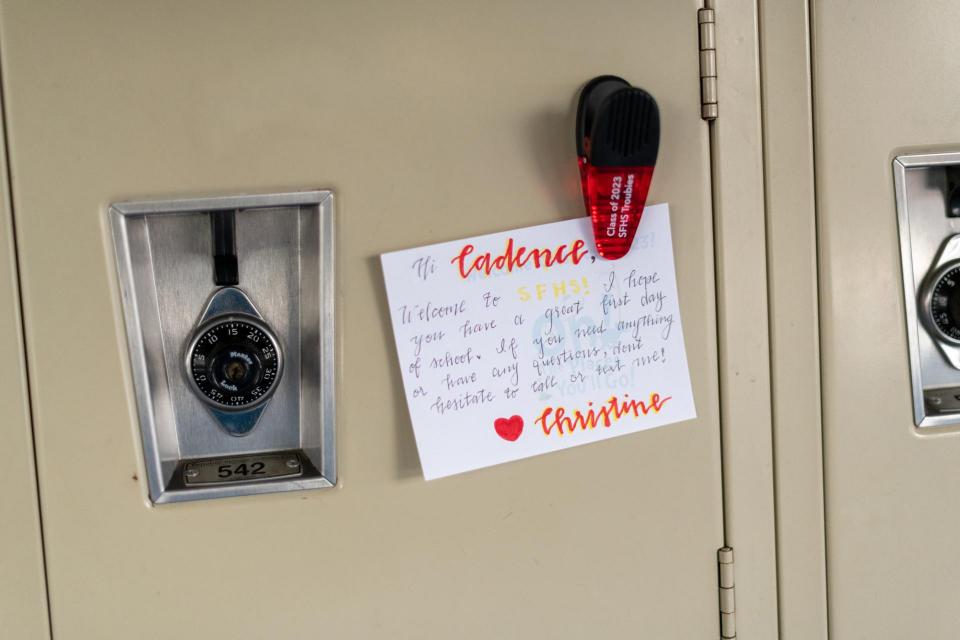 Class of 2023
SFHS Troubies
Hi Cadence,
Welcome to SFHS! I hope
you have a great first day
of school. If you need anything
or have any questions, dont
hesitate to call or text me!
Christine
You'll Go!
10 15 20 25 30 35
Master
Lock
542